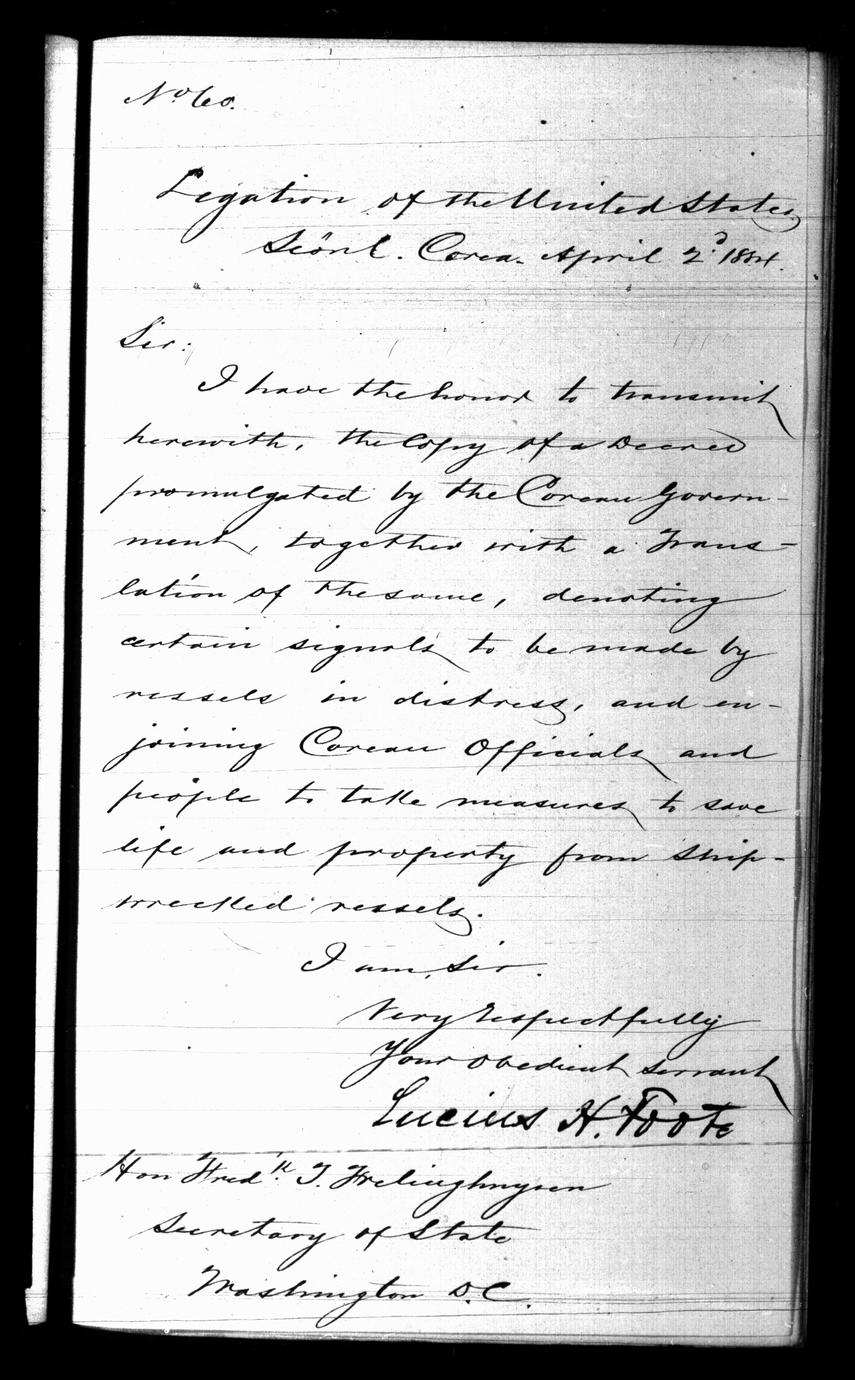 No 60.
Legation of the United States
Séoul. Corea. April 2d 1884.
Sir:
I have the honor to transmit
herewith, the Copy of a Decree
promulgated by the Corean Govern-
ment, together with a Trans-
lation of the same, denoting
certain signals to be made by
vessels in distress, and en-
joining Corean Officials and
people to take measures to save
life and property from ship-
wrecked vessels.
I am, Sir.
Very respectfully
Your obedient servant
Lucius H. Foote
Hon Fred'k T. Frelinghuysen
Secretary of State
Washington D.C.